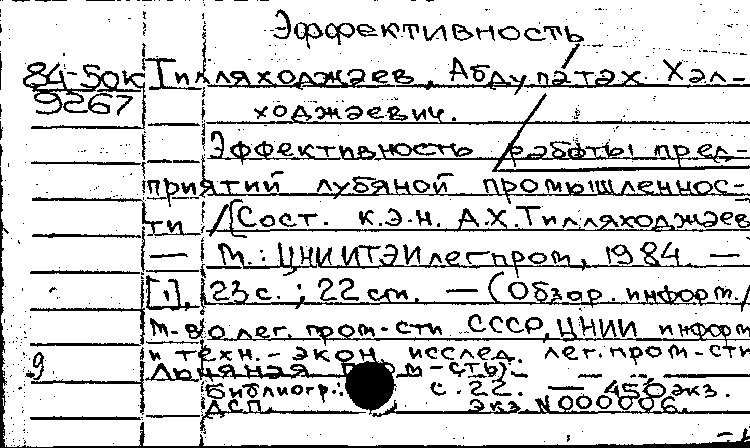 Эффективность
84-50к Тилляходжаев, Абдупатах Хал-
9267 ходжаевич.
Эффективность работы пред-
приятий лубяной промышленнос-
ти /[Сост. к.э.н. А.Х.Тилляходжаев
— М.: ЦНИИТЭИлегпром, 1984. —
[1], 23 с. ; 22 см. — (Обзор. информ./
М-во лег. пром-сти СССР, ЦНИИ информ
и техн.-экон. исслед. лег.пром-сти
9 Льняная пром-сть).
Библиогр.: с. 22. — 450 экз.
ДСП. экз. N 000006.